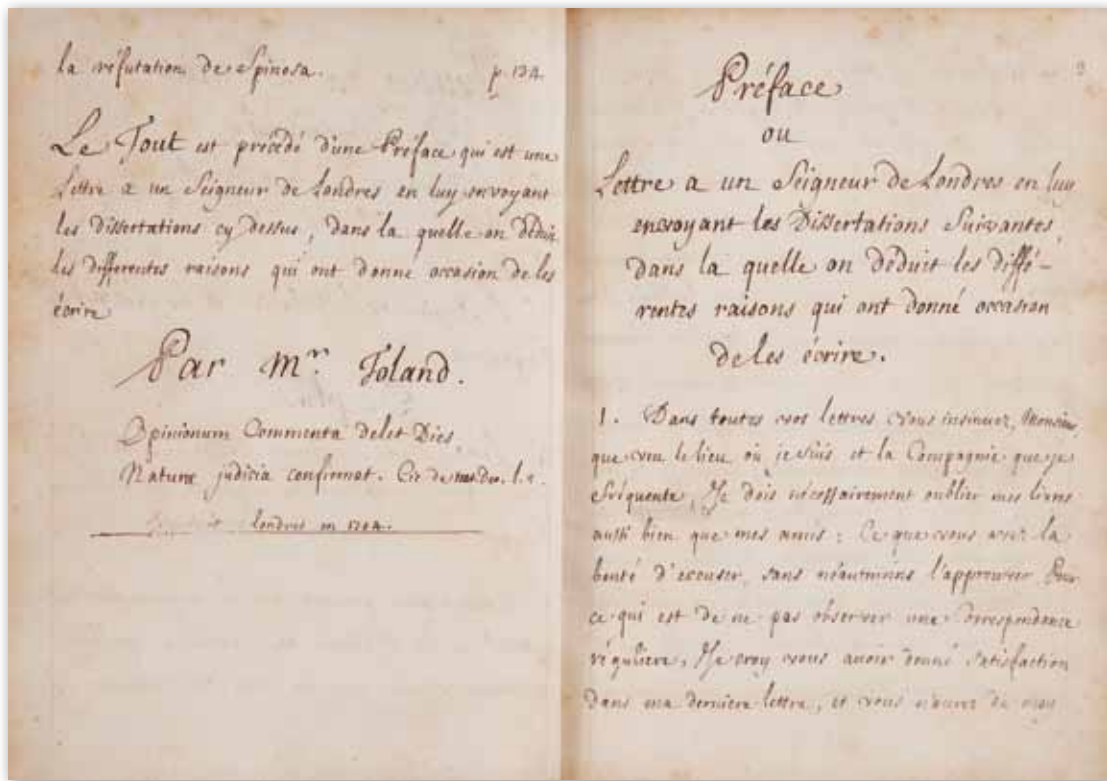 la réfutation de Spinosa. p. 134.
Le Tout est précédé d'une Préface qui est une
Lettre a un Seigneur de Londres en luy envoyant
les dissertations cy dessus, dans la quelle on déduit
les differentes raisons qui ont donné occasion de les
écrire
Par Mr. Toland.
Opinionum Commenta delet Dies,
Naturæ judicia confirmat. Cic de nat. Deo. l. 2.
Londres in 1704.
Préface
ou
Lettre a un Seigneur de Londres en luy
envoyant les Dissertations Suivantes,
dans la quelle on déduit les diffé-
rentes raisons qui ont donné occasion
de les écrire.
1. Dans toutes vos lettres vous insinuez, Monsieur,
que vu le lieu où je suis et la Compagnie que je
fréquente, Je dois nécessairement oublier mes livres
aussi bien que mes amis : Ce que vous avez la
bonté d'excuser, sans néantmoins l'approuver Pour
ce qui est de ne pas observer une Correspondance
régulière, Je croy vous avoir donné satisfaction
dans ma derniere lettre, et vous n'aurez de mon